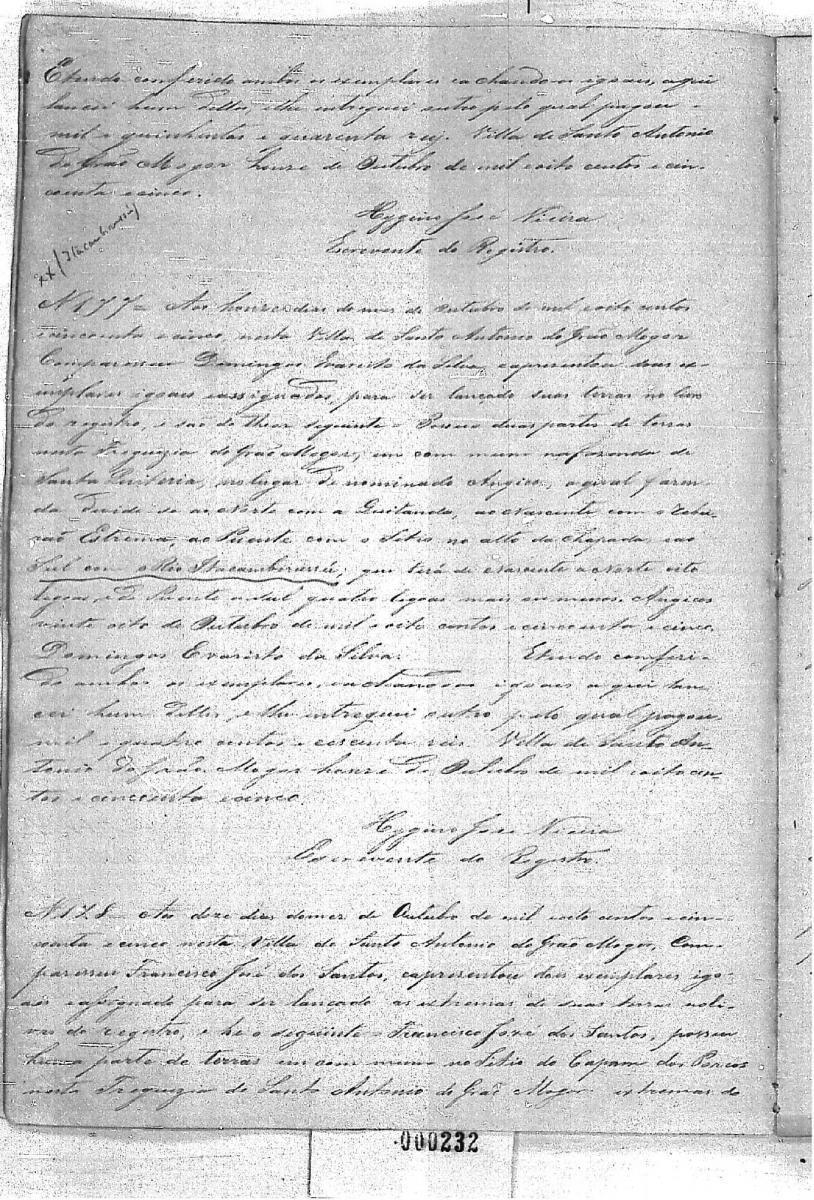 E tendo conferido ambos os exemplares e achandoos igoaes, aqui
lancei hum delles, e lhe intreguei outro pelo qual pagou
mil e quinhentos e quarenta reis. Villa de Santo Antonio
do Graõ Mogor honze de Outubro de mil e oito centos e cin-
coenta e cinco.
Hygino José Vieira
Escrevente do Registro.
Itacambirussú
N 177 = Aos honze dias do mez de Outubro de mil e oito centos
e cincoenta e cinco, nesta Villa de Santo Antonio do Graõ Mogor
Compareceu Domingos Evaristo da Silva, e apresentou dous ex-
emplares igoaes e assignados, para ser lançado suas terras no livro
do registro, e saõ do theor seguinte = Possuo duas partes de terras
nesta Freguezia do Graõ Mogor, em com mum na fazenda de
Santa Quiteria, no lugar denominado Angico, a qual fazen
da devide-se ao Norte com a Quitanda, ao Nascente com o
Estrema, ao Poente com o Sitio, no alto da Chapada, e ao
Sul com o Rio Itacambirussú; que terá de Nascente a Norte oito
legoas, e de Poente a Sul quatro legoas mais ou menos. Angicos
vinte oito de Outubro de mil e oito centos e cincoenta e cinco.
Domingos Evaristo da Silva. E tendo conferi-
do ambos os exemplares, e achandoos igoaes, aqui lan
cei hum delles, e lhe intreguei outro pelo qual pagou
mil e quatro centos e cescenta reis. Villa de Santo An-
tonio do Graõ Mogor honze de Outubro de mil e oito cen-
tos e cincoenta e cinco.
Hygino José Vieira
Escrevente do Registro.
N 178 = Aos doze dias do mez de Outubro de mil e oito centos e cin-
coenta e cinco nesta Villa de Santo Antonio do Graõ Mogor, Com-
pareceu Francisco José dos Santos, e apresentou dois exemplares igo-
aes e assignado para ser lançado as extremas de suas terras no li-
vro do registro, e he o seguinte = Francisco José dos Santos, possue
huma parte de terras em com mum no Sitio do Capam dos Porcos
nesta Freguezia de Santo Antonio do Graõ Mogor extremas do
000232